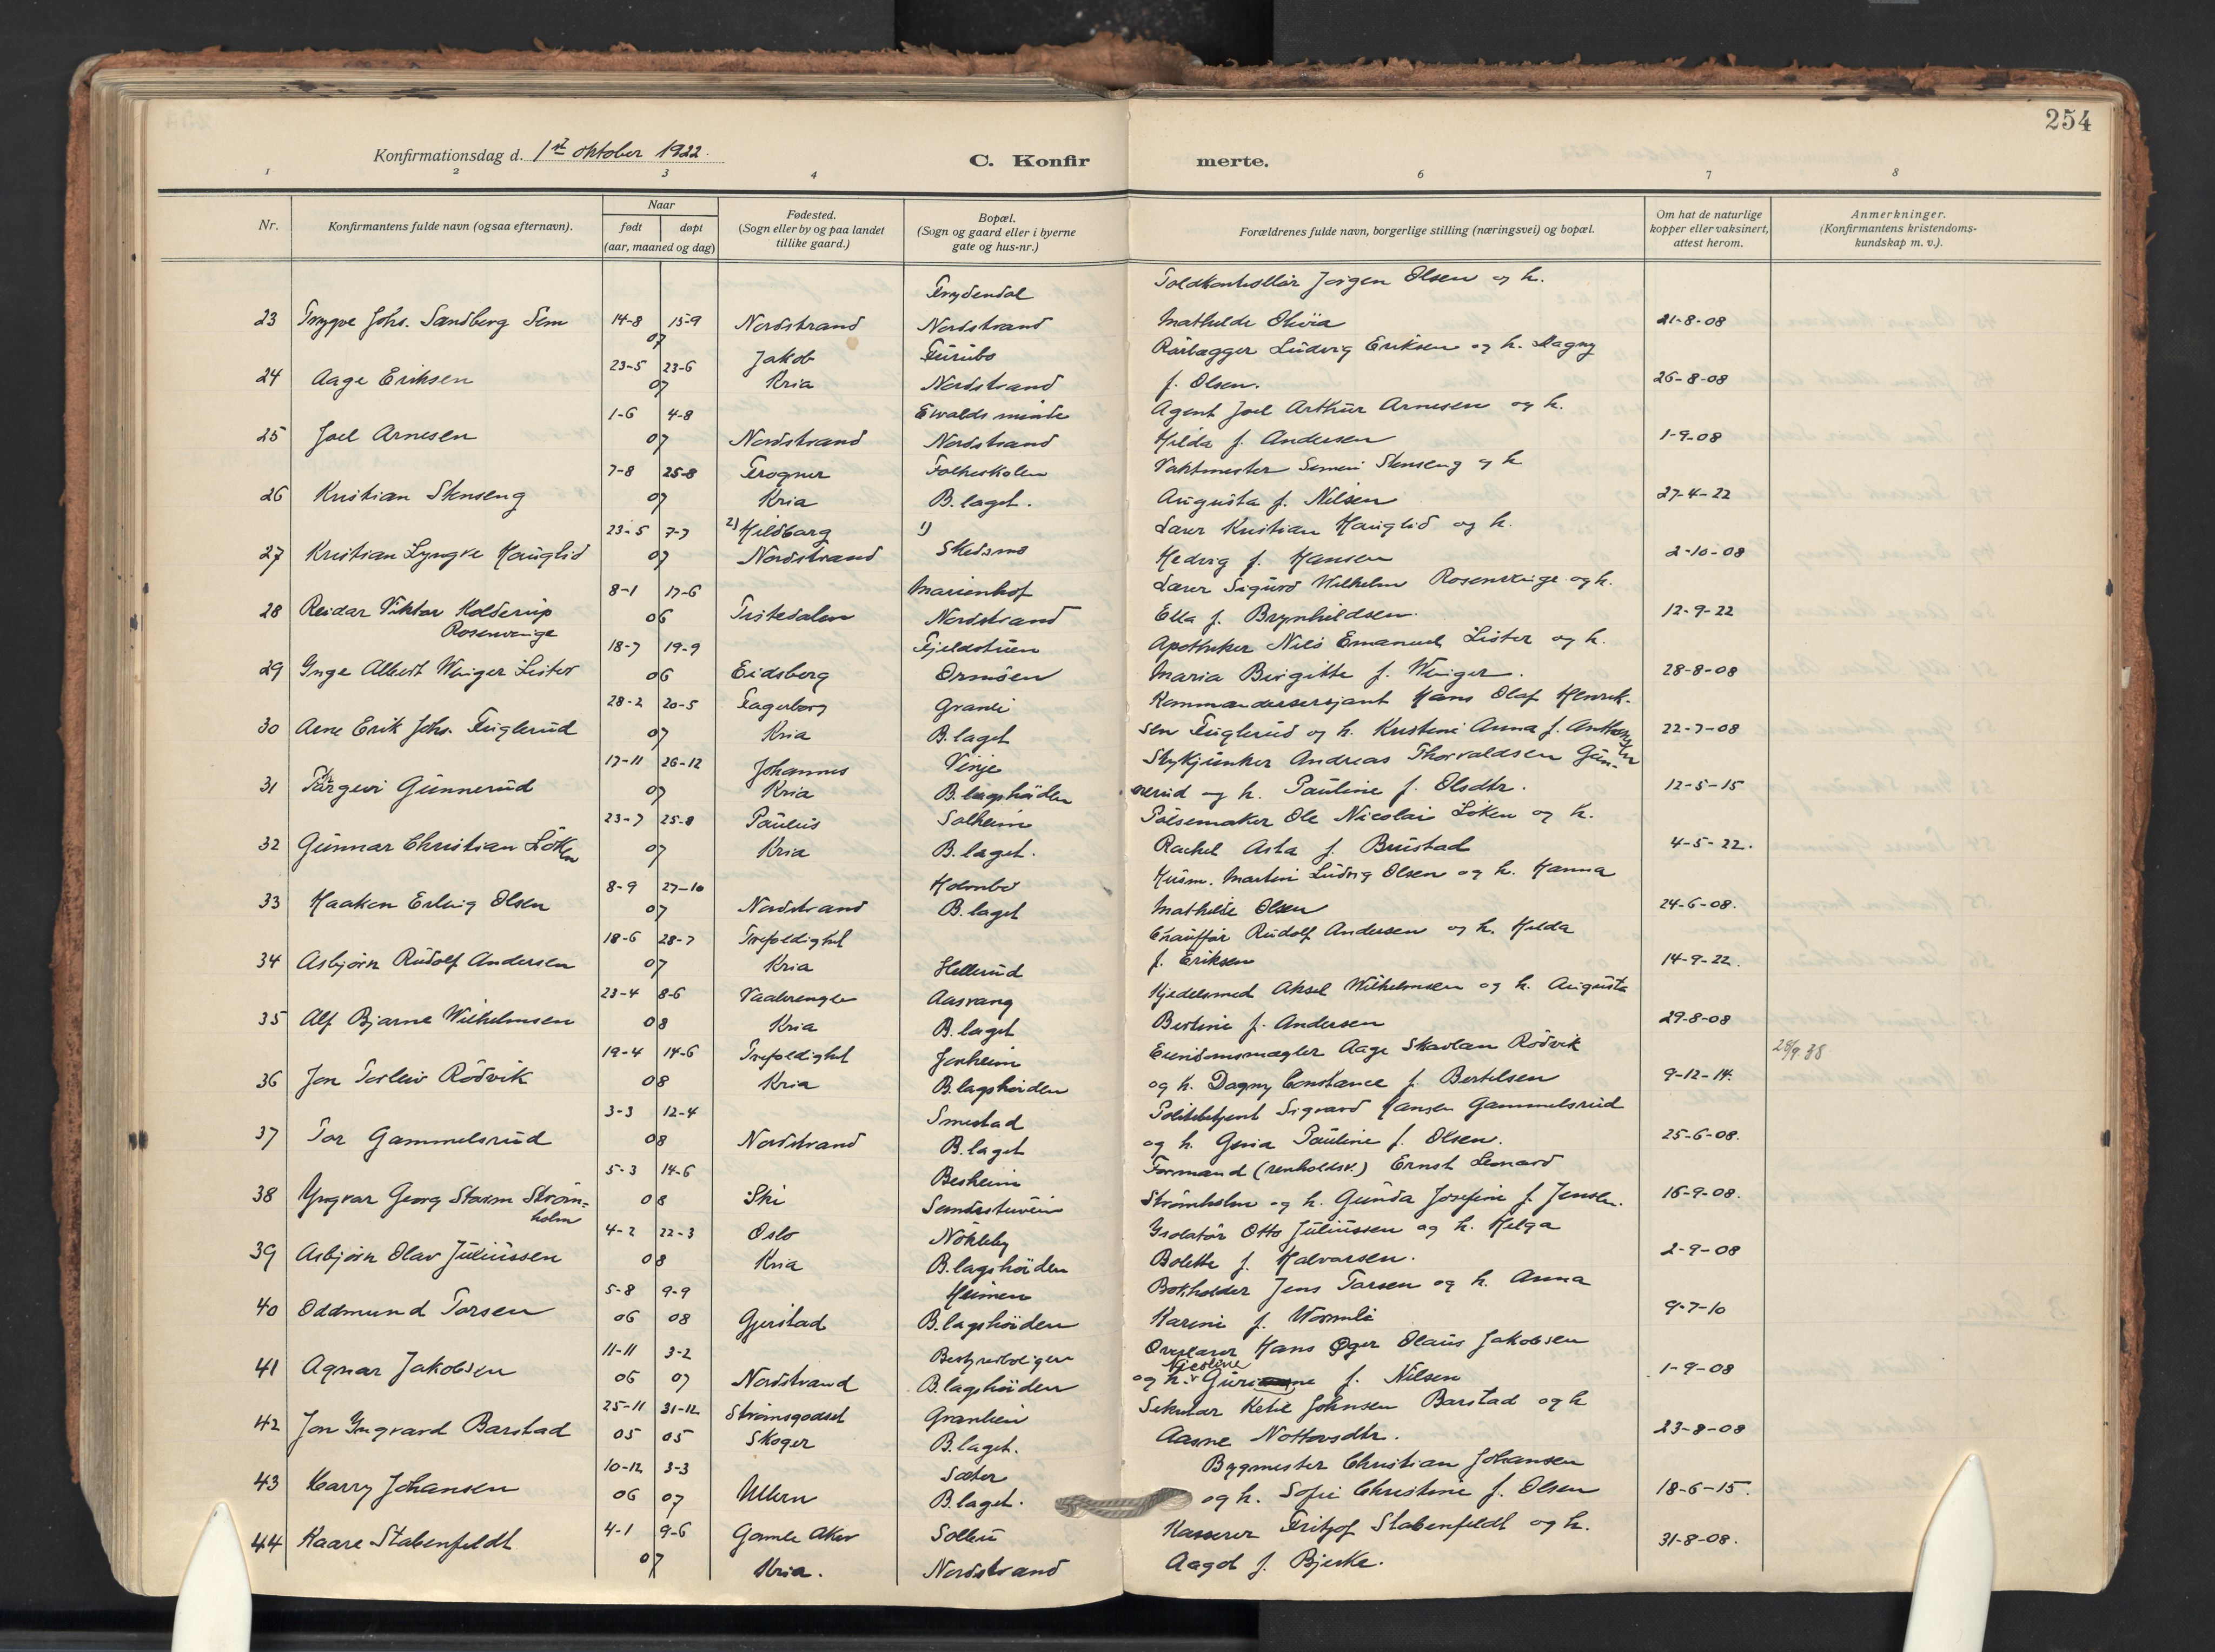 254
Konfirmationsdag d. 1st oktober 1922.
C. Konfir merte.
1 2 3 4 6 7 8
Nr.
Konfirmantens fulde navn (ogsaa efternavn).
Naar
født døpt
(aar, maaned og dag)
Fødested.
(Sogn eller by og paa landet
tillike gaard.)
Bopæl.
(Sogn og gaard eller i byerne
gate og hus-nr.)
Forældrenes fulde navn, borgerlige stilling (næringsvei) og bopæl.
Om hat de naturlige
kopper eller vaksinert,
attest herom.
Anmerkninger.
(Konfirmantens kristendoms-
kundskap m. v.).
Frydendal Toldkontrollør Jørgen Olsen og h.
23 Trygve Johs. Sandberg Sem 14-8 15-9 07 Nordstrand Nordstrand Mathilde Olivia 21-8-08
23-5 23-6 Jakob Furubo Rørlægger Ludvig Eriksen og h. Magny
24 Aage Eriksen 07 Kria Nordstrand f. Olsen. 26-8-08
1-6 4-8 Ewalds minde Agent Joel Arthur Arnesen og h.
25 Joel Arnesen 07 Nordstrand Nordstrand Hilda f. Andersen 1-9-08
7-8 25-8 Frogner Folkeskolen Vaktmester Stenseng og h
26 Kristian Stenseng 07 Kria B.laget. Augusta f. Nilsen 27-4-22
23-5 7-7 2) Hildbarg 1) Lærer Kristian Hauglid og h.
27 Kristian Lyngve Hauglid 07 Nordstrand Skedsmo Hedvig f. Hansen 2-10-08
8-1 17-6 Marienhof Lærer Sigurd Wilhelm Rosenvinge og h.
28 Reidar Viktor Kolderup 06 Tistedalen Nordstrand Ella f. Brynhildsen. 12-9-22
Rosenvinge
18-7 19-9 Fjeldstuen Apotheker Nils Emanuel Lister og h.
29 Inge Albert Winger Lister 06 Eidsberg Ormøen Maria Birgitte f. Winger. 28-8-08
28-2 20-5 Fagerborg Granli Kommandersersjant Hans Olaf Henrik-
30 Arne Erik Johs. Fuglerud 07 Kria B.laget sen Fuglerud og h. Kristine Anna f. 22-7-08
17-11 26-12 Johannes Vinje Andreas Thorvaldsen Gun-
31 Gunnerud 07 Kria B.lagshøiden nerud og h. Pauline f. Olsdtr. 12-5-15
23-7 25-8 Paulus Solheim Pølsemaker Ole Nicolai Løken og h.
32 Gunnar Christian Løken 07 Kria B.laget. Rachel Asta f. Brustad 4-5-22.
8-9 27-10 Holmbo Husm. Martin Ludvig Olsen og h. Hanna
33 Haakon Erling Olsen 07 Nordstrand B.laget Mathilde Olsen 24-6-08.
18-6 28-7 Trefoldighet Chauffør Rudolf Andersen og h. Hilda
34 Asbjørn Rudolf Andersen 07 Kria Hellerud f. Eriksen 14-9-22.
23-4 8-6 Vaalerengen Aasvang Kjedelsmed Aksel Wilhelmsen og h. Augusta
35 Alf Bjarne Wilhelmsen 08 Kria B.laget Bertine f. Andersen 29-8-08
19-4 14-6 Trefoldighet Jerheim Eiendomsmægler Aage Skavlan Rødvik 28/9 38
36 Jon Torleiv Rødvik 08 Kria B.lagshøiden og h. Dagny Constance f. Bertelsen 9-12-14.
3-3 12-4 Smestad Politibetjent Sigvard Hansen Gammelsrud
37 Tor Gammelsrud 08 Nordstrand B.laget og h. Pauline f. Olsen. 25-6-08.
5-3 14-6 Besheim Formand (renholdsv.) Ernst Leonard
38 Yngvar Georg Storm Strøm= 08 Ski Strømholm og h. Gunda Josefine f. Jensen. 16-9-08.
holm
4-2 22-3 Oslo Nøkleby Isolatør Otto Juliussen og h. Helga
39 Asbjørn Olav Juliussen 08 Kria B.lagshøiden Bolette f. Halvorsen. 2-9-08
5-8 9-9 Heimen Bokholder Jens Torsen og h. Anna
40 Oddmund Torsen 06 08 Gjerstad B.lagshøiden Karine f. Wormli 9-7-10
11-11 3-2 Bestyrerboligen Overlærer Hans Øger Olaus Jakobsen
41 Agnar Jakobsen 06 07 Nordstrand B.lagshøiden og h. Nicoline f. Nilsen 1-9-08
25-11 31-12 Strømsgodset Granheim Sekretær Ketil Johnsen Barstad og h
42 Jon Ingvard Barstad 05 05 Skoger B.laget. Aasne Nottovsdtr. 23-8-08
10-12 3-3 Sæter Bygmester Christian Johansen
43 Harry Johansen 06 07 Ullern B.laget. og h. Sofie Christine f. Olsen 18-6-15.
4-1 9-6 Gamle Aker Solli Kasserer Fritjof Stabenfeldt og h.
44 Kaare Stabenfeldt 07 Kria. Nordstrand Aagot f. Bjerke. 31-8-08.